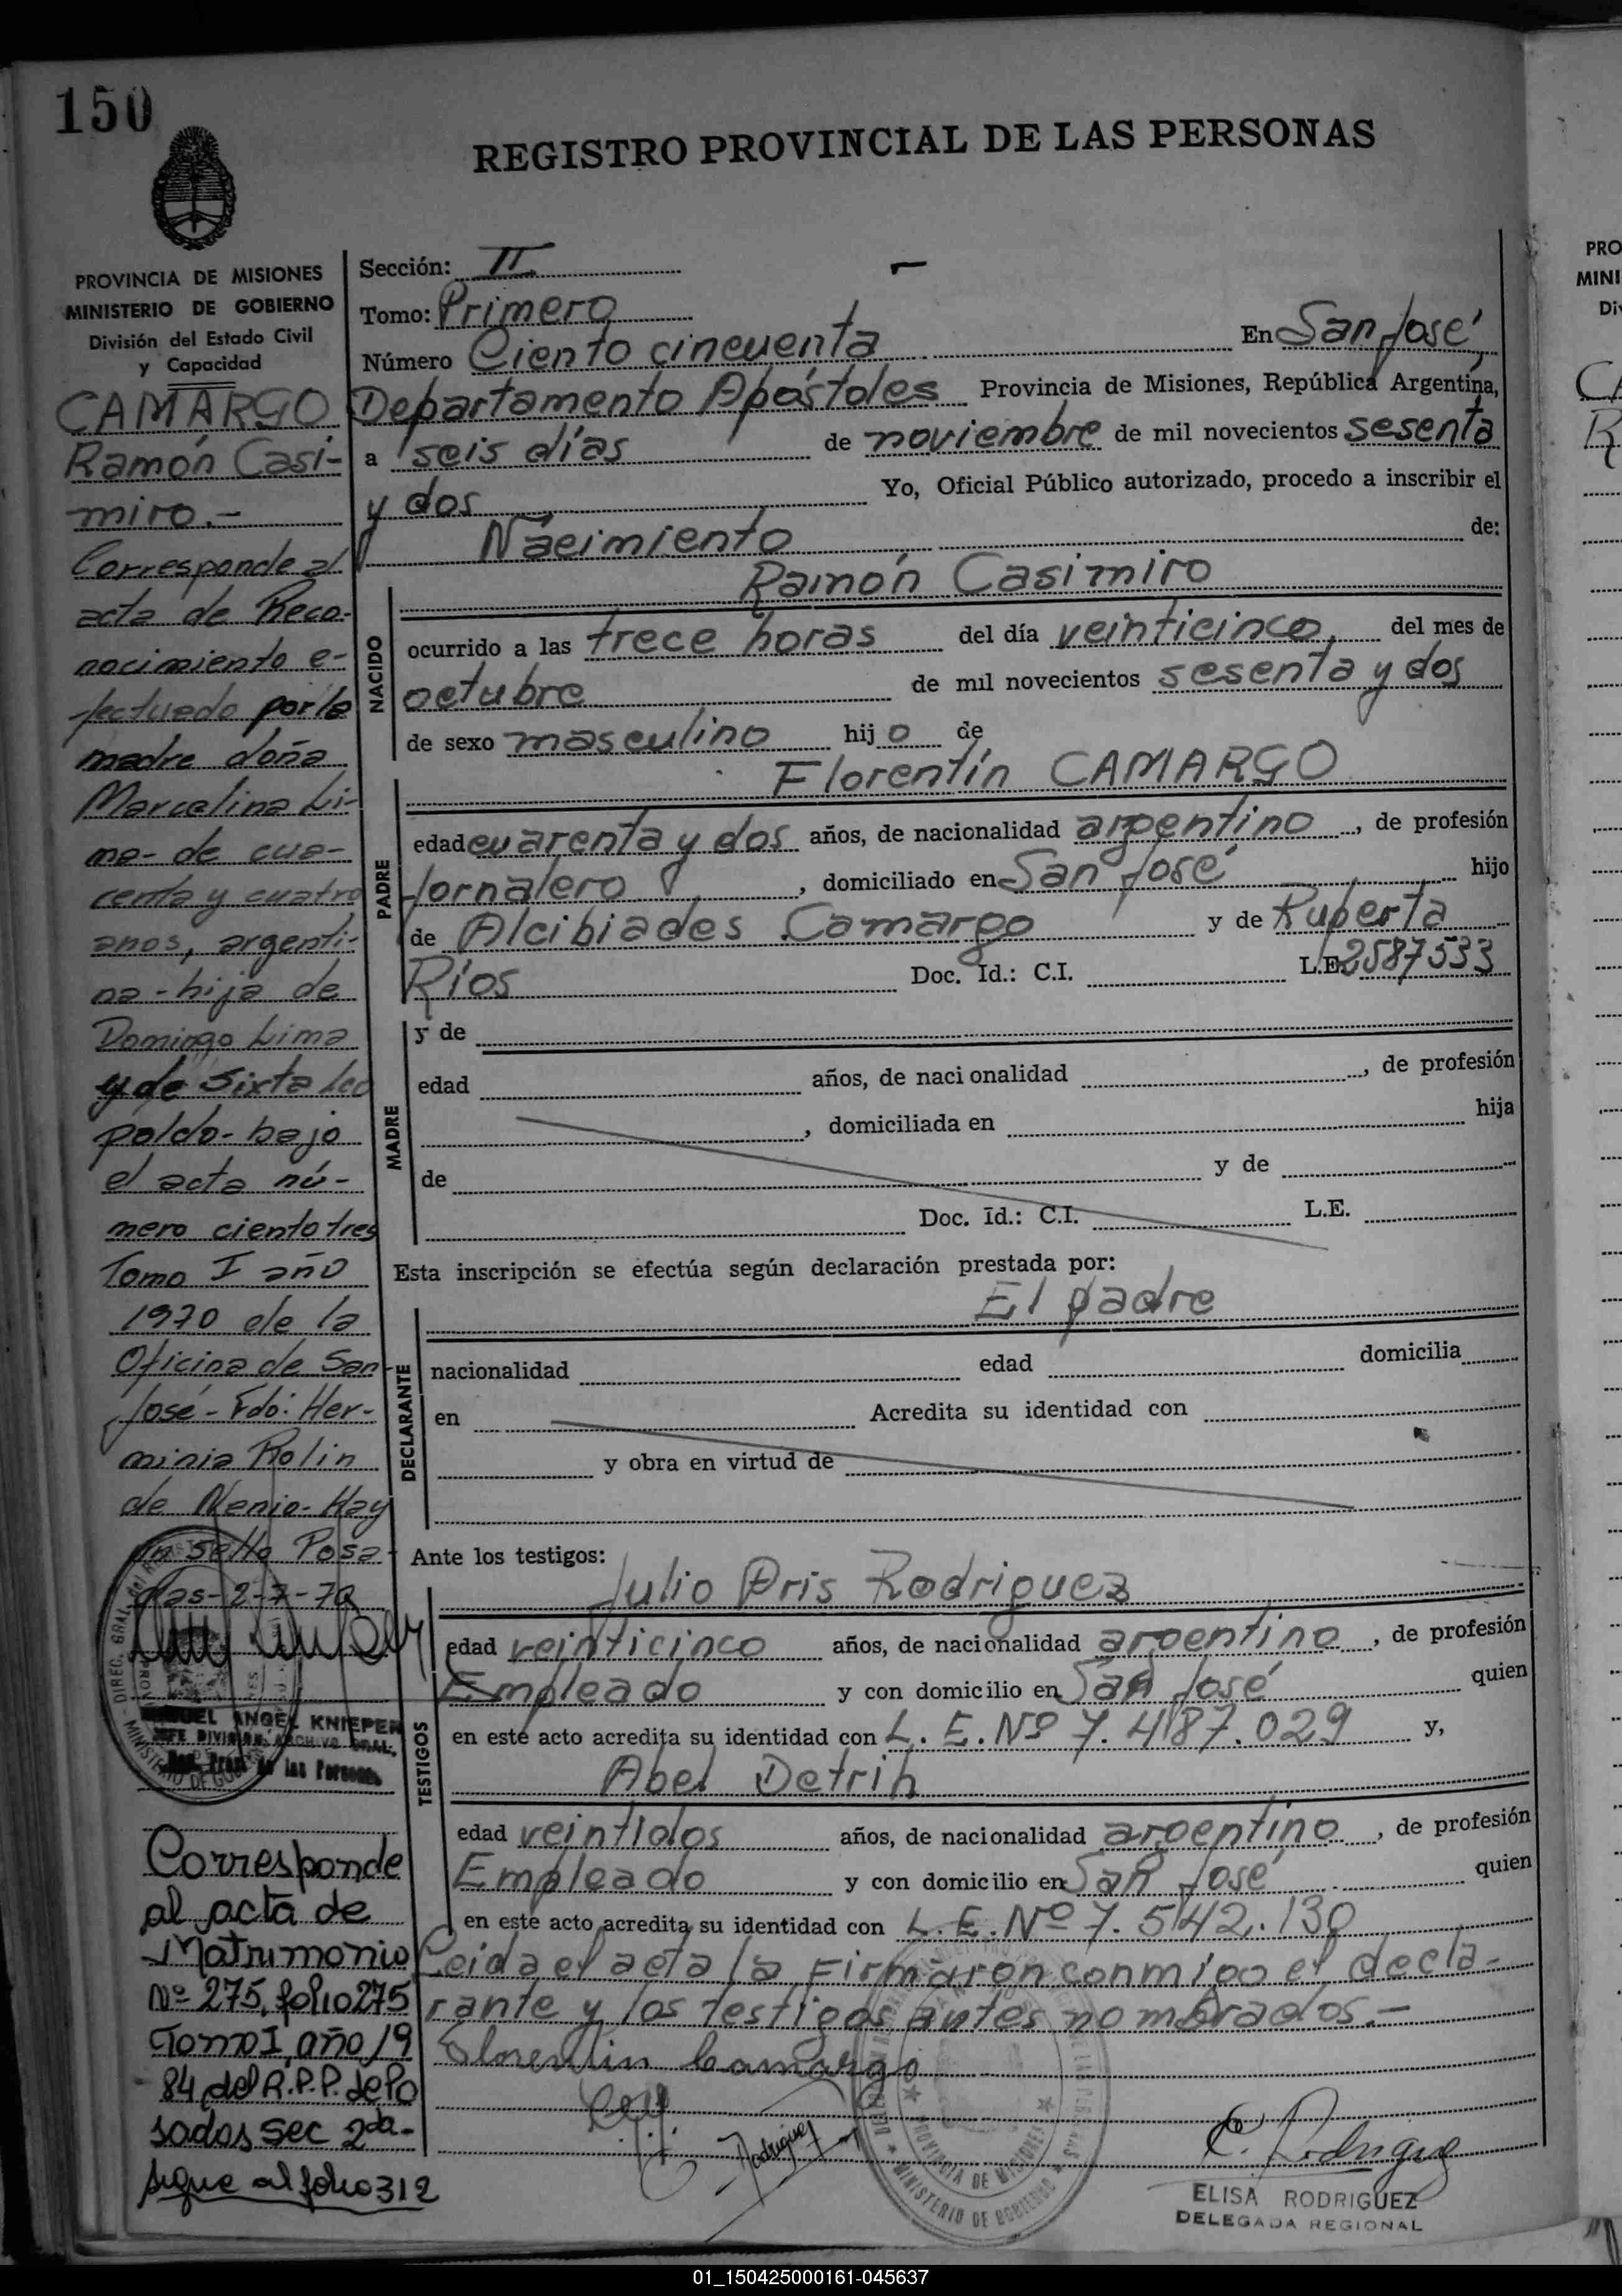 150
REGISTRO PROVINCIAL DE LAS PERSONAS
PROVINCIA DE MISIONES
MINISTERIO DE GOBIERNO
División del Estado Civil
y Capacidad
CAMARGO
Ramón Casi-
miro.-
Corresponde al
acta de Reco-
nocimiento e-
fectuado por la
madre doña
Marcelina Li-
ma- de cua-
renta y cuatro
anos, argenti-
na - hija de
Domingo Lima
y de Sixta Leo
poldo- bajo
el acta nú-
mero ciento tres
Tomo I año
1970 de la
Oficina de San
José - Fdo: Her-
minia Rolin
de Nenio- Hay
un sello Posa-
das- 2-7-70
MIGUEL ANGEL KNIEPER
JEFE DIVISION ARCHIVO GRAL.
Reg. Prov. de las Personas
Corresponde
al acta de
Matrimonio
Nº 275, folio 275
Tomo I, año 19
84 del R.P.P. de Po
sadas Sec 2da-
sigue al folio 312
Sección: II
Tomo: Primero
Número Ciento cincuenta En San José,
Departamento Apóstoles Provincia de Misiones, República Argentina,
a seis días de noviembre de mil novecientos sesenta
y dos Yo, Oficial Público autorizado, procedo a inscribir el
Nacimiento de:
Ramón Casimiro
NACIDO
ocurrido a las trece horas del día veinticinco, del mes de
octubre de mil novecientos sesenta y dos
de sexo masculino hijo de
Florentín CAMARGO
PADRE
edad cuarenta y dos años, de nacionalidad argentino, de profesión
Jornalero, domiciliado en San José hijo
de Alcibiades Camargo y de Ruperta
Ríos Doc. Id.: C.I. L.E. 2587533
MADRE
y de
edad años, de nacionalidad , de profesión
, domiciliada en hija
de y de
Doc. Id.: C.I. L.E.
Esta inscripción se efectúa según declaración prestada por:
El padre
DECLARANTE
nacionalidad edad domicilia
en Acredita su identidad con
y obra en virtud de
Ante los testigos:
Julio Pris Rodriguez
TESTIGOS
edad veinticinco años, de nacionalidad argentino, de profesión
Empleado y con domicilio en San José quien
en este acto acredita su identidad con L. E. Nº 7.487.029 y,
Abel Detrih
edad veintidos años, de nacionalidad argentino, de profesión
Empleado y con domicilio en San José quien
en este acto acredita su identidad con L. E. Nº 7.542.130
Leida el acta la Firmaron conmigo el decla-
rante y los testigos antes nombrados.-
Florentin Camargo
Rodriguez
E. Rodriguez
PROVINCIA DE MISIONES
MINISTERIO DE GOBIERNO
ELISA RODRIGUEZ
DELEGADA REGIONAL
PRO
MINI
01_150425000161-045637